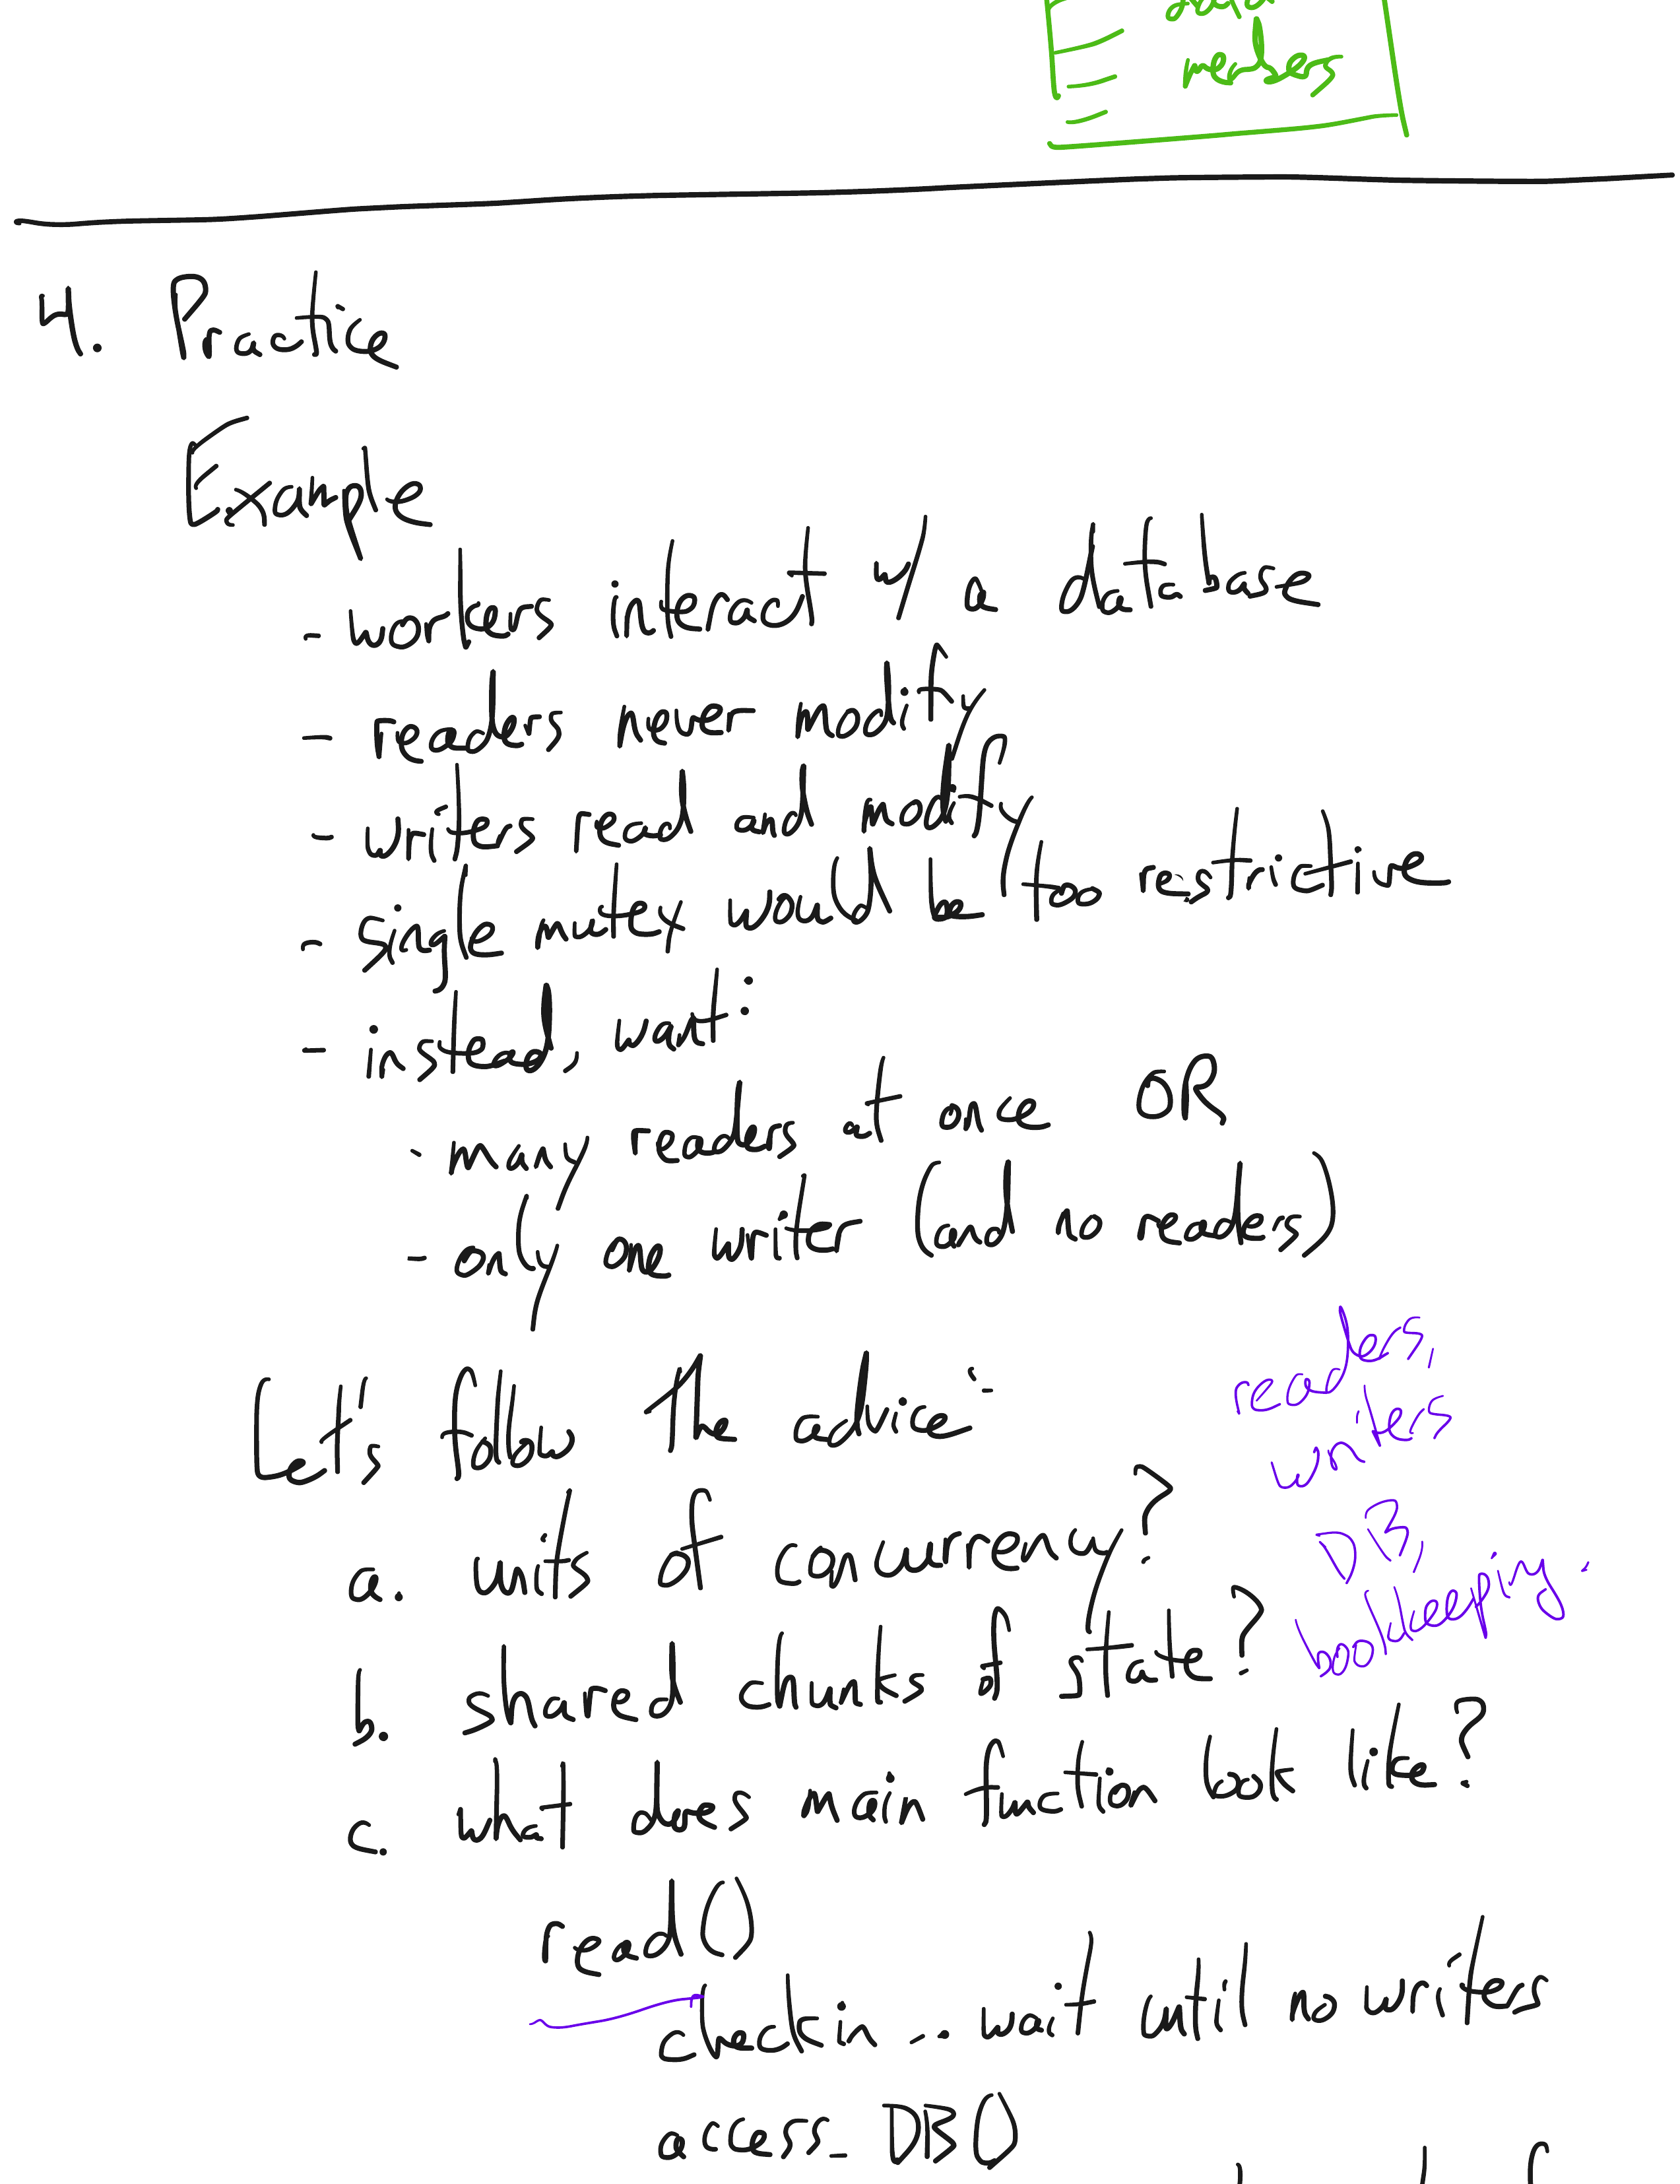 readers
4. Practice
Example
- workers interact w/ a database
- readers never modify
- writers read and modify
- single mutex would be too restrictive
- instead, want:
- many readers at once OR
- only one writer (and no readers)
Let's follow the advice:
readers,
writers
a. units of concurrency?
DB,
bookkeeping.
b. shared chunks of state?
c. what does main function look like?
read()
check in... wait until no writers
access_DB()